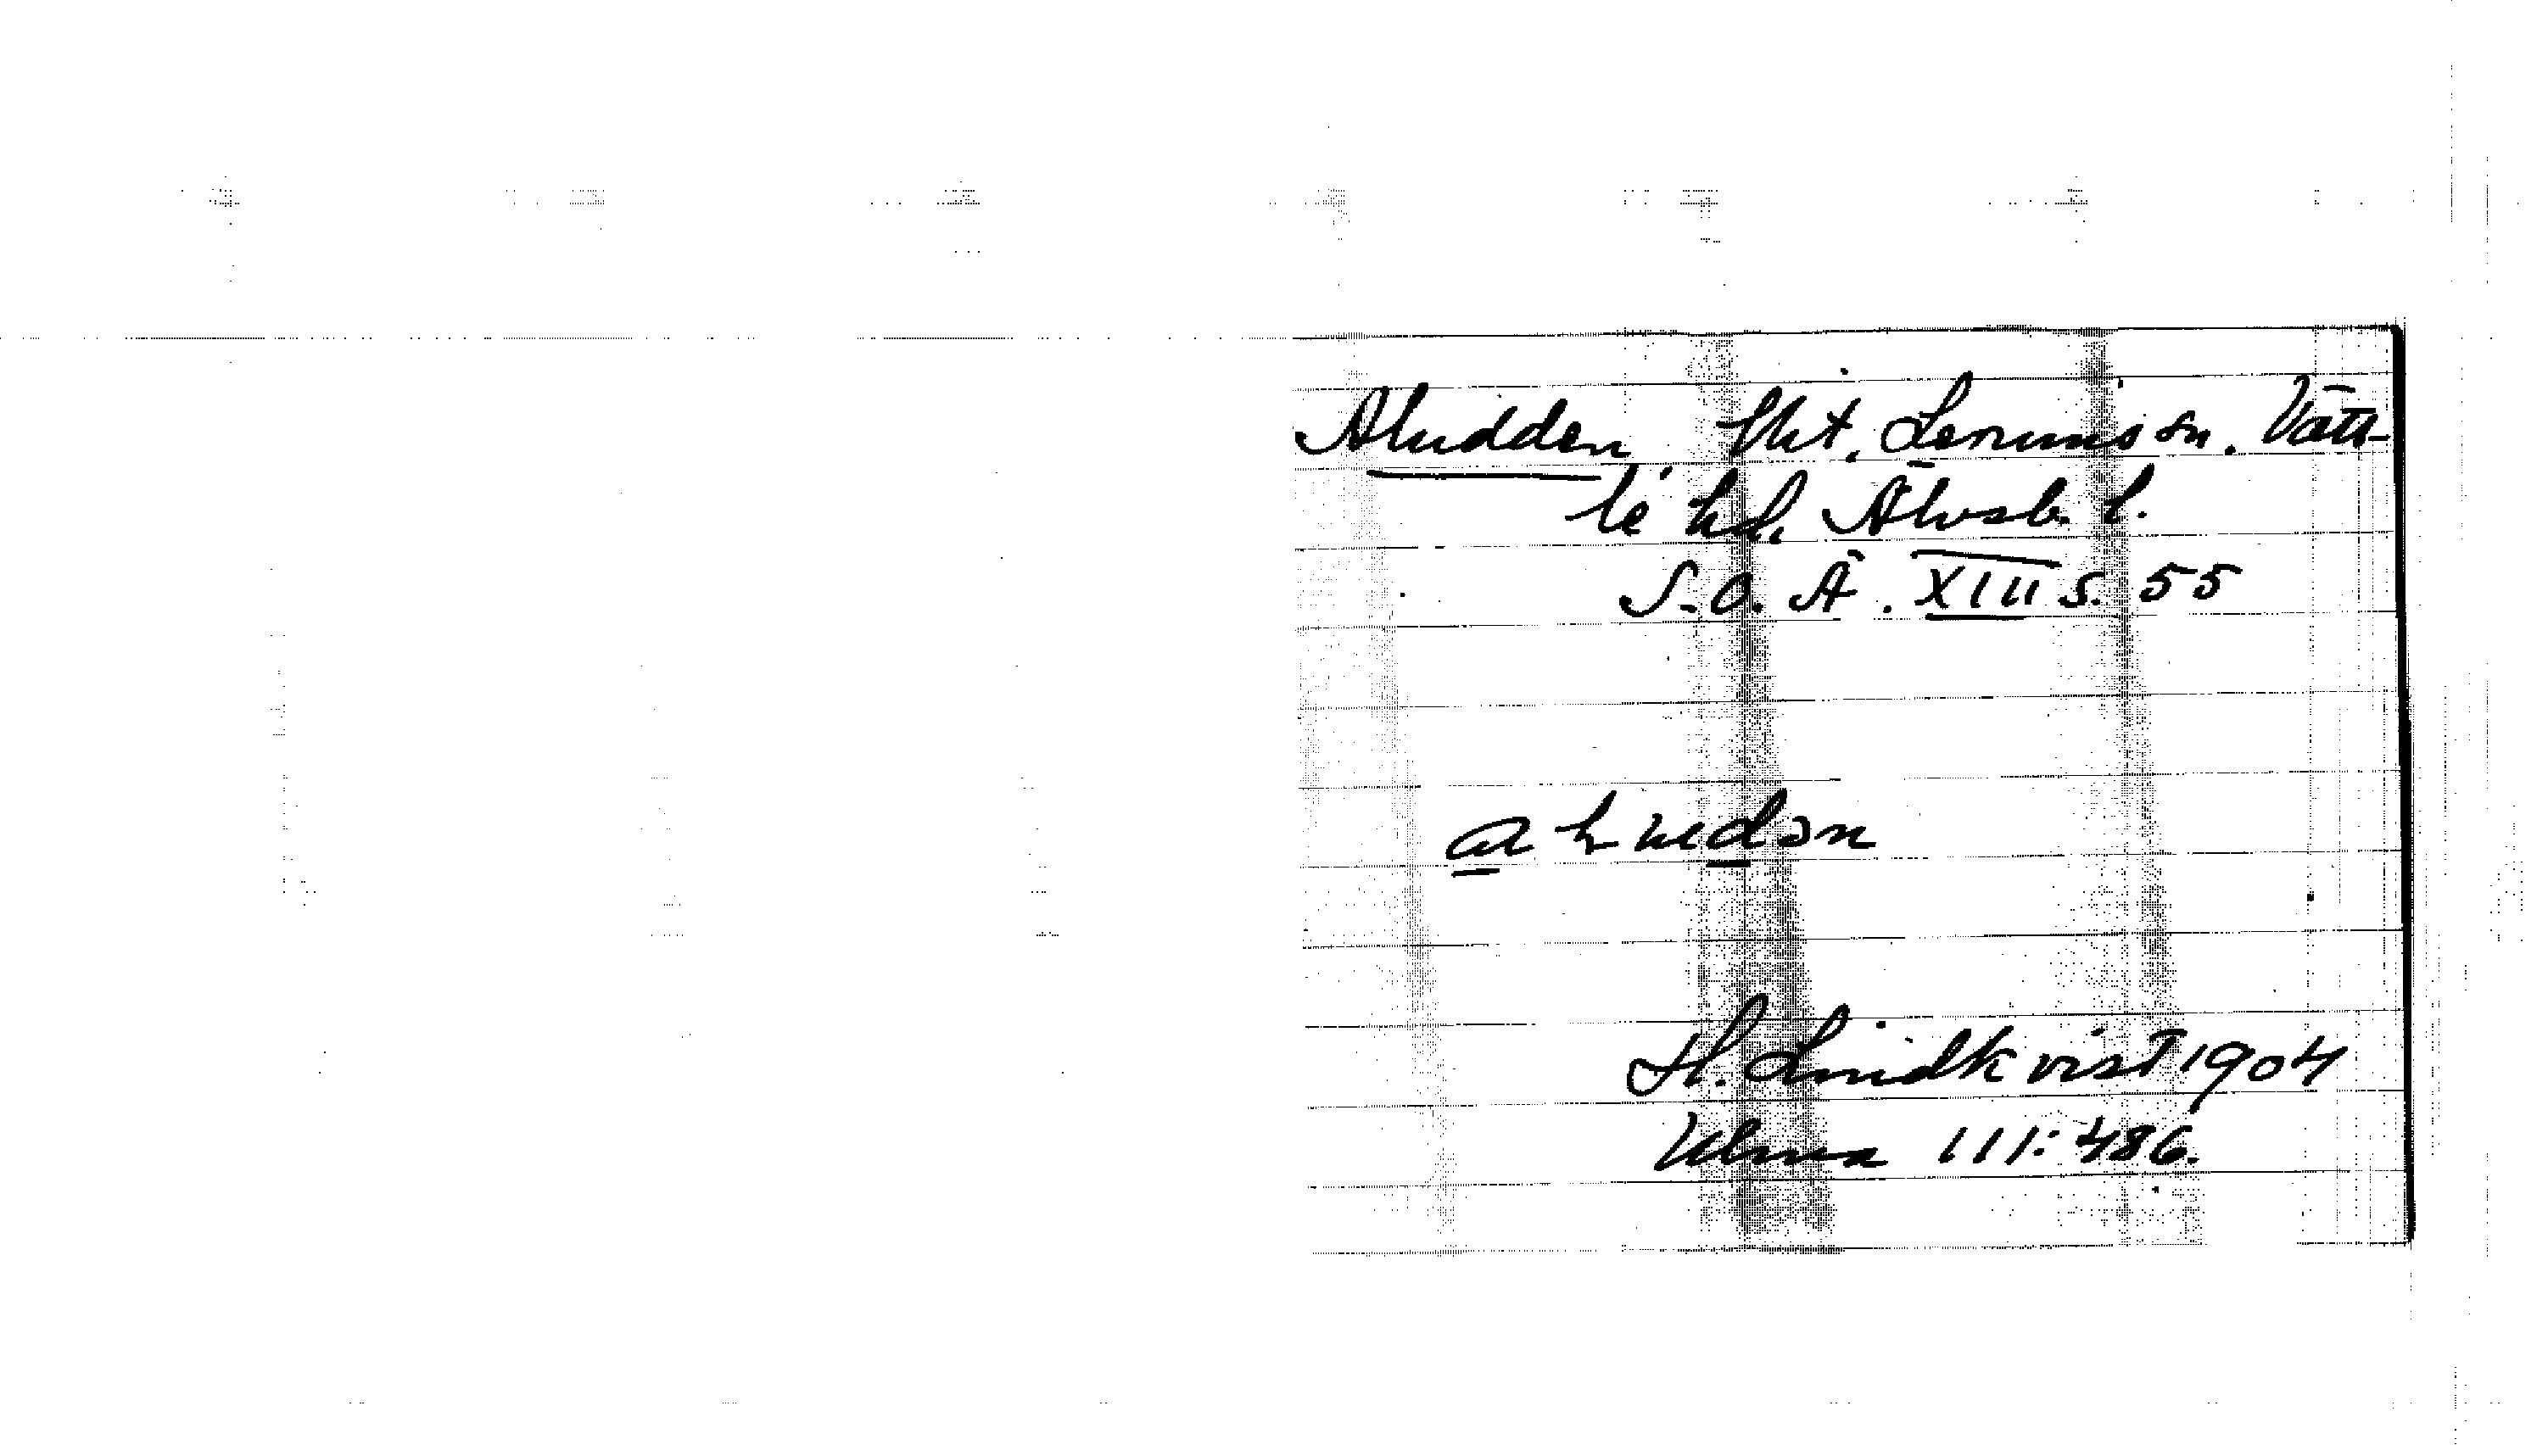 Aludden Skt. Lerums sn. Vätt-
le hd. Älvsb. l.
S.O.Ä. XIII s. 55
H. Lindkvist 1904
Ulma 111:486.